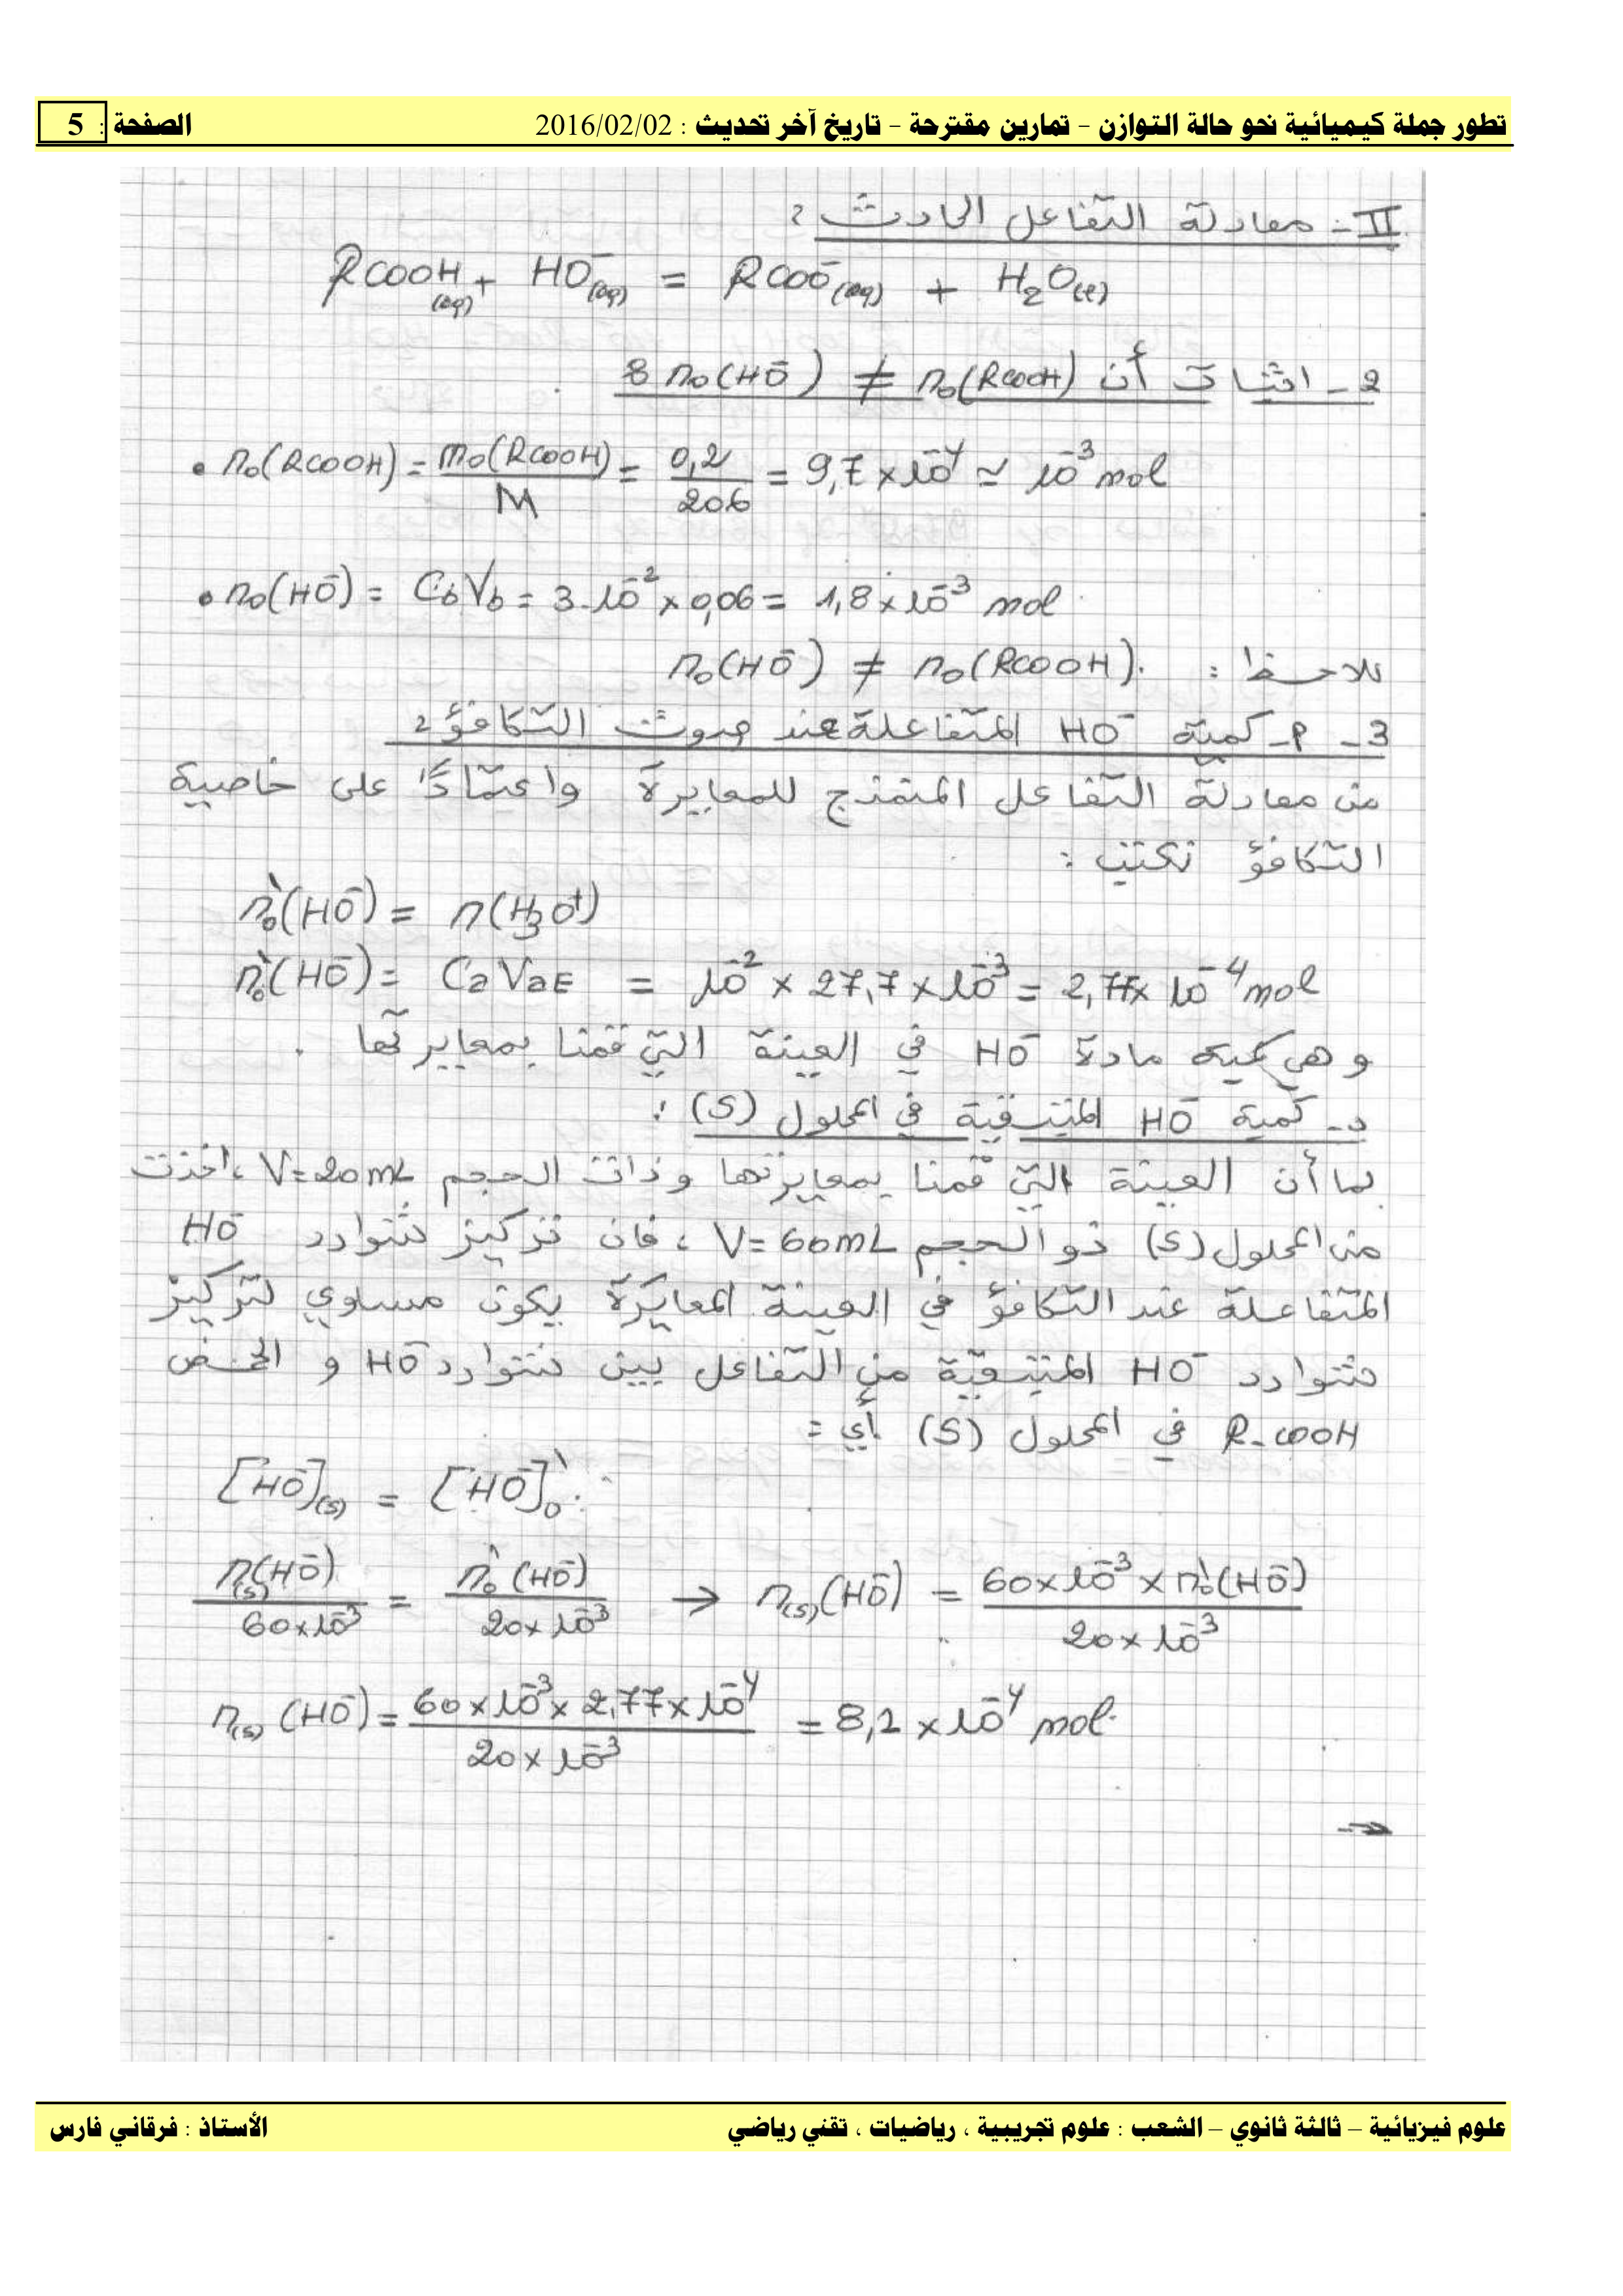 تطور جملة كيميائية نحو حالة التوازن – تمارين مقترحة – تاريخ آخر تحديث : 2016/02/02 الصفحة : 5
II- معادلة التفاعل الحادث :
RCOOH(aq) + HO⁻(aq) = RCOO⁻(aq) + H₂O(l)
2 - اثبات أن n₀(RCOOH) ≠ n₀(HO⁻) :
• n₀(RCOOH) = m₀(RCOOH)/M = 0,2/206 = 9,7 × 10⁻⁴ ≃ 10⁻³ mol
• n₀(HO⁻) = CbVb = 3.10⁻² × 0,06 = 1,8 × 10⁻³ mol
نلاحظ : n₀(HO⁻) ≠ n₀(RCOOH).
3 - أ- كمية HO⁻ المتفاعلة عند حدوث التكافؤ :
من معادلة التفاعل المنمذج للمعايرة واعتمادًا على خاصية
التكافؤ نكتب :
n₀'(HO⁻) = n(H₃O⁺)
n₀'(HO⁻) = CaVaE = 10⁻² × 27,7 × 10⁻³ = 2,77 × 10⁻⁴ mol
و هي كمية مادة HO⁻ في العينة التي قمنا بمعايرتها .
د- كمية HO⁻ المتبقية في المحلول (S) :
بما أن العينة التي قمنا بمعايرتها وذات الحجم V=20mL ، اخذت
من المحلول (S) ذو الحجم V=60mL ، فان تركيز شوارد HO⁻
المتفاعلة عند التكافؤ في العينة المعايرة يكون مساوي لتركيز
شوارد HO⁻ المتبقية من التفاعل بين شوارد HO⁻ و الحمض
R-COOH في المحلول (S) أي :
[HO⁻](S) = [HO⁻]₀'
n(S)(HO⁻)/60×10⁻³ = n₀'(HO⁻)/20×10⁻³ → n(S)(HO⁻) = 60×10⁻³ × n₀'(HO⁻)/20×10⁻³
n(S)(HO⁻) = 60×10⁻³ × 2,77×10⁻⁴/20×10⁻³ = 8,2 × 10⁻⁴ mol.
علوم فيزيائية – ثالثة ثانوي – الشعب : علوم تجريبية ، رياضيات ، تقني رياضي الأستاذ : فرقاني فارس